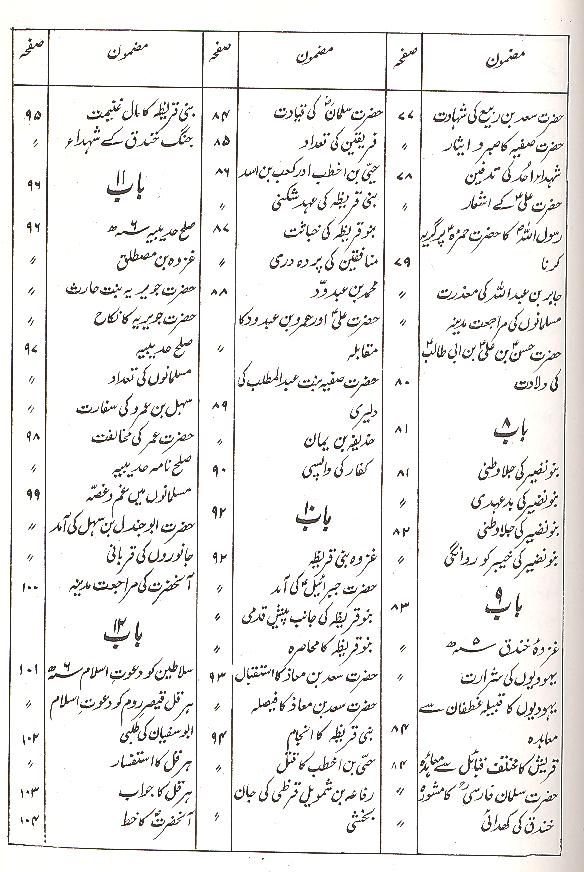 مضمون صفحہ
حضرت سعد بن ربیع کی شہادت ۷۷
حضرت صفیہ کا صبر و ایثار 〃
شہداءِ احد کی تدفین ۷۸
حضرت علیؑ کے اشعار 〃
رسول اللہؐ کا حضرت حمزہؑ پر گریہ
کرنا ۷۹
جابر بن عبداللہ کی معذرت 〃
مسلمانوں کی مراجعت مدینہ 〃
حضرت حسنؑ بن علیؑ بن ابی طالبؑ
کی ولادت ۸۰
باب ۸ ۸۱
بنو نضیر کی جلاوطنی ۸۱
بنو نضیر کی بدعہدی 〃
بنو نضیر کی جلاوطنی ۸۲
بنو نضیر کی خیبر کو روانگی 〃
باب ۹ ۸۳
غزوۂ خندق ۵ سنہ ھ 〃
یہودیوں کی شرارت 〃
یہودیوں کا قبیلہ غطفان سے
معاہدہ ۸۴
قریش کا مختلف قبائل سے معاہدہ ۸۴
حضرت سلمان فارسیؓ کا مشورہ 〃
خندق کی کھدائی 〃
مضمون صفحہ
حضرت سلمانؓ کی قیادت ۸۴
فریقین کی تعداد ۸۵
حیّی بن اخطب اور کعب بن اسد ۸۶
بنی قریظہ کی عہد شکنی 〃
بنو قریظہ کی خباثت ۸۷
منافقین کی پردہ دری 〃
محمد بن عبدودّ ۸۸
حضرت علیؑ اور عمرو بن عبدود کا
مقابلہ 〃
حضرت صفیہ بنت عبدالمطلب کی
دلیری ۸۹
حذیفہ بن یمان 〃
کفار کی واپسی ۹۰
باب ۱۰ ۹۲
غزوہ بنی قریظہ ۹۲
حضرت جبرائیلؑ کی آمد 〃
بنو قریظہ کی جانب پیش قدمی 〃
بنو قریظہ کا محاصرہ 〃
حضرت سعد بن معاذ کا استقبال ۹۳
حضرت سعد بن معاذ کا فیصلہ 〃
بنی قریظہ کا انجام ۹۴
حیّی بن اخطب کا قتل 〃
رفاعہ بن شمویل قرظی کی جان
بخشی 〃
مضمون صفحہ
بنی قریظہ کا مال غنیمت ۹۵
جنگ خندق کے شہداء 〃
باب ۱۱ ۹۶
صلح حدیبیہ ۶ سنہ ھ ۹۶
غزوہ بن مصطلق 〃
حضرت جویریہ بنت حارث 〃
حضرت جویریہ کا نکاح 〃
صلح حدیبیہ ۹۷
مسلمانوں کی تعداد 〃
سہل بن عمرو کی سفارت 〃
حضرت عمر کی مخالفت ۹۸
صلح نامہ حدیبیہ 〃
مسلمانوں میں غم و غصّہ ۹۹
حضرت ابو جندل بن سہل کی آمد 〃
جانوروں کی قربانی 〃
آنحضرت کی مراجعت مدینہ ۱۰۰
باب ۱۲
سلاطین کو دعوت اسلام ۶ سنہ ھ ۱۰۱
ہرقل قیصر روم کو دعوتِ اسلام 〃
ابوسفیان کی طلبی ۱۰۲
ہرقل کا استفسار 〃
ہرقل کا جواب ۱۰۳
آنحضرتؐ کا خط ۱۰۴